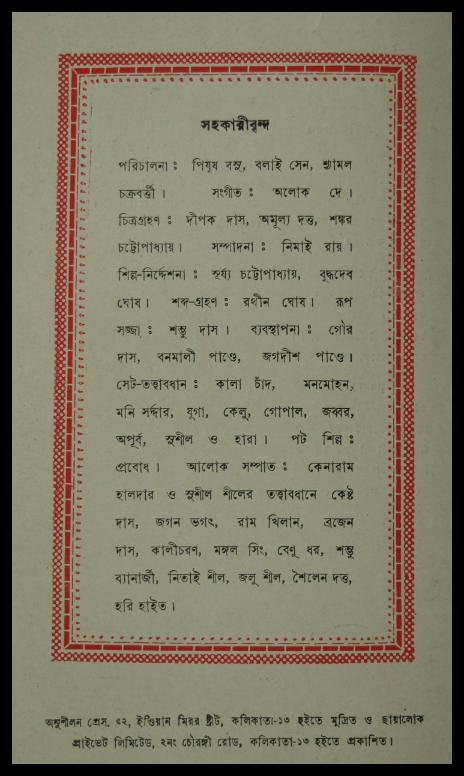 সহকারীবৃন্দ
পরিচালনা : পিযূষ বসু, বলাই সেন, শ্যামল
চক্রবর্ত্তী । সংগীত : অলোক দে ।
চিত্রগ্রহণ : দীপক দাস, অমূল্য দত্ত, শঙ্কর
চট্টোপাধ্যায় । সম্পাদনা : নিমাই রায় ।
শিল্প-নির্দ্দেশনা : সূর্য্য চট্টোপাধ্যায়, বুদ্ধদেব
ঘোষ । শব্দ-গ্রহণ : রথীন ঘোষ । রূপ
সজ্জা : শম্ভু দাস । ব্যবস্থাপনা : গৌর
দাস, বনমালী পাণ্ডে, জগদীশ পাণ্ডে ।
সেট-তত্ত্বাবধান : কালা চাঁদ, মনমোহন,
মনি সর্দ্দার, যুগা, কেলু, গোপাল, জব্বর,
অপূর্ব, সুশীল ও হারা । পট শিল্প :
প্রবোধ । আলোক সম্পাত : কেনারাম
হালদার ও সুশীল শীলের তত্ত্বাবধানে কেষ্ট
দাস, জগন ভগৎ, রাম খিলান, ব্রজেন
দাস, কালীচরণ, মঙ্গল সিং, বেণু ধর, শম্ভু
ব্যানার্জী, নিতাই শীল, জলু শীল, শৈলেন দত্ত,
হরি হাইত ।
অনুশীলন প্রেস, ৫২, ইণ্ডিয়ান মিরর ষ্ট্রীট, কলিকাতা-১৩ হইতে মুদ্রিত ও ছায়ালোক
প্রাইভেট লিমিটেড, ২নং চৌরঙ্গী রোড, কলিকাতা-১৩ হইতে প্রকাশিত ।